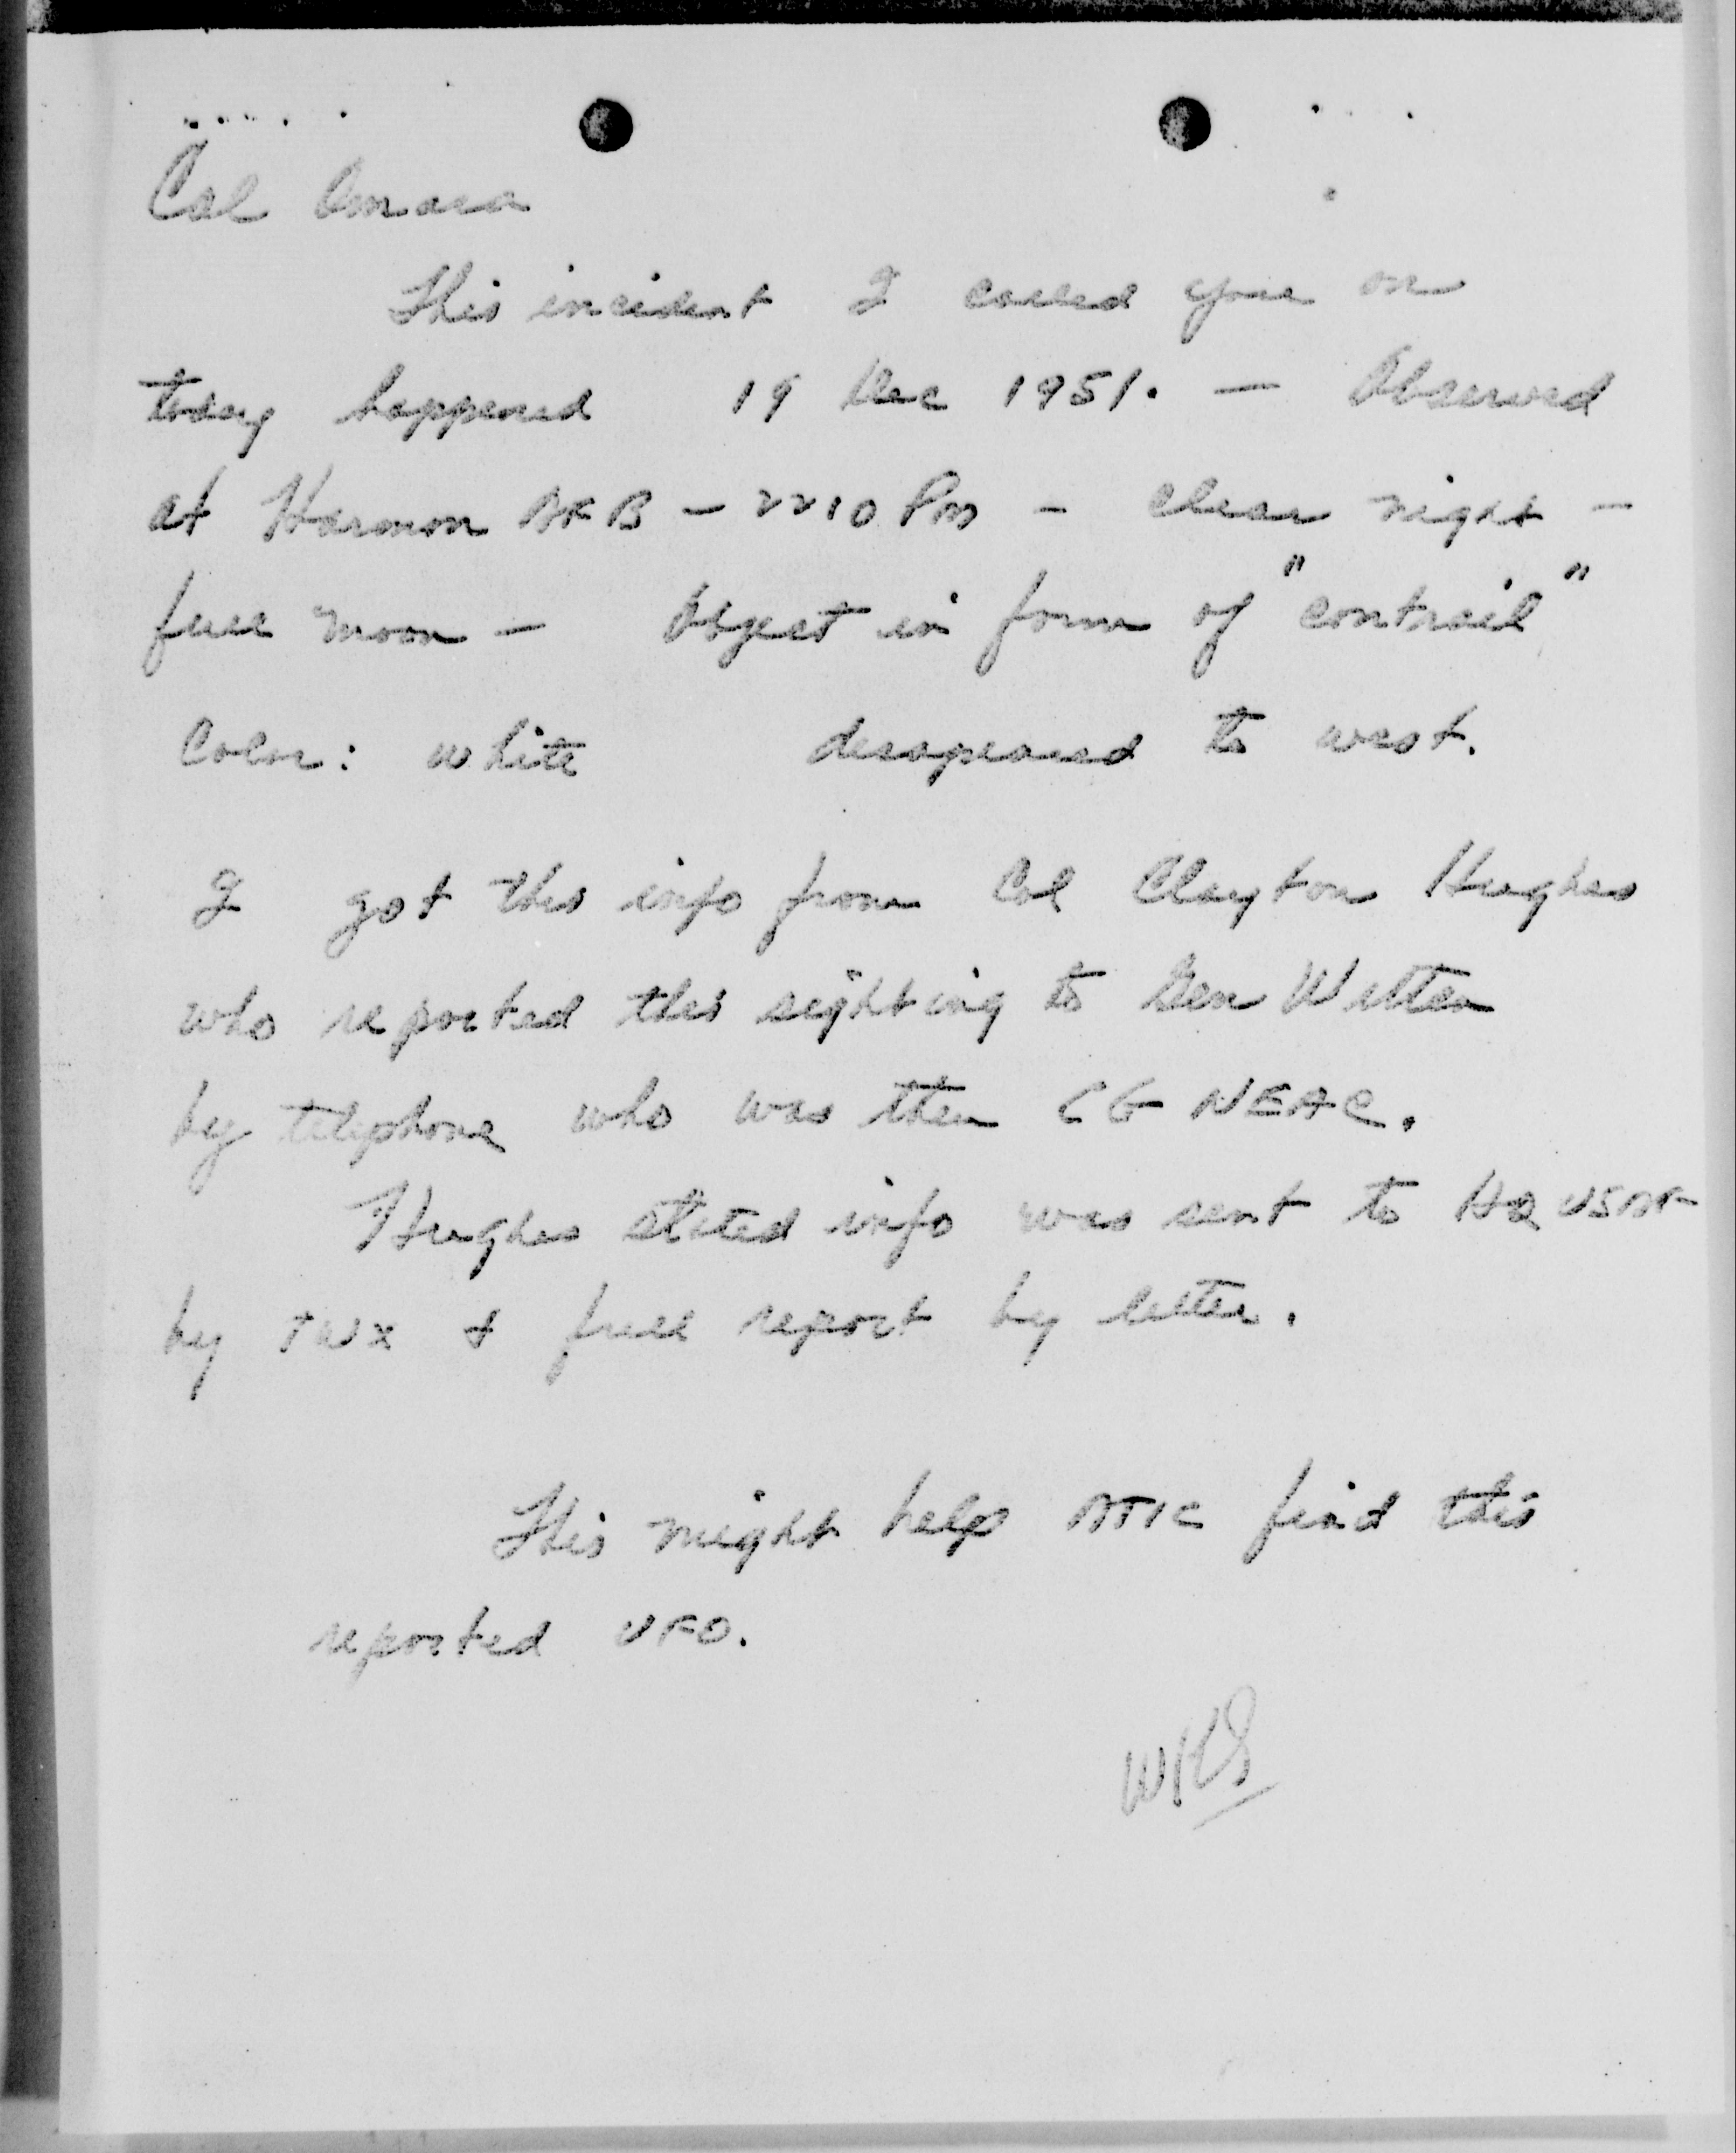 Col Omara
This incident I called you on
today happened 19 Dec 1951. — Observed
at Harmon AFB - 2210 PM - clear night -
full moon - Object in form of "contrail"
Color: white disapeared to west.
I got this info from Col Clayton Hughes
who reported this sighting to Gen Witten
by telephone who was then CG NEAC.
Hughes stated info was sent to HQ USAF
by TWX & full report by letter.
This might help ATIC find this
reported UFO.